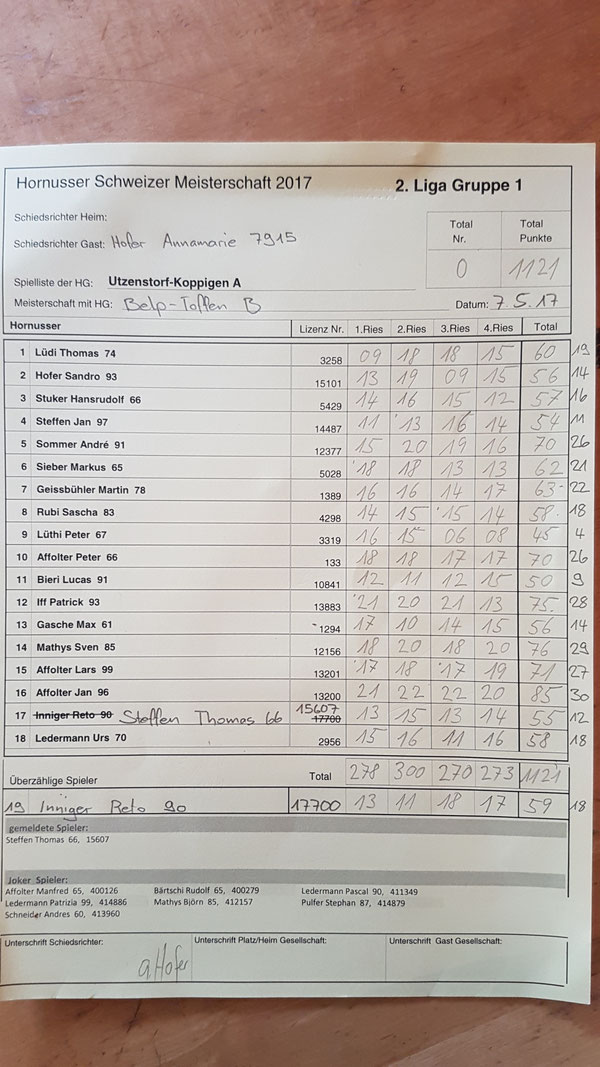 Hornusser Schweizer Meisterschaft 2017 2. Liga Gruppe 1
Schiedsrichter Heim:
Schiedsrichter Gast: Hofer Annamarie 7915
Total Nr. Total Punkte
0 1121
Spielliste der HG: Utzenstorf-Koppigen A
Meisterschaft mit HG: Belp-Toffen B Datum: 7.5.17
Hornusser Lizenz Nr. 1.Ries 2.Ries 3.Ries 4.Ries Total
1 Lüdi Thomas 74 3258 09 18 18 15 60 19
2 Hofer Sandro 93 15101 13 19 09 15 56 14
3 Stuker Hansrudolf 66 5429 14 16 15 12 57 16
4 Steffen Jan 97 14487 11 13 16 14 54 11
5 Sommer André 91 12377 15 20 19 16 70 26
6 Sieber Markus 65 5028 18 18 13 13 62 21
7 Geissbühler Martin 78 1389 16 16 14 17 63 22
8 Rubi Sascha 83 4298 14 15 15 14 58 18
9 Lüthi Peter 67 3319 16 15 06 08 45 4
10 Affolter Peter 66 133 18 18 17 17 70 26
11 Bieri Lucas 91 10841 12 11 12 15 50 9
12 Iff Patrick 93 13883 21 20 21 13 75 28
13 Gasche Max 61 1294 17 10 14 15 56 14
14 Mathys Sven 85 12156 18 20 18 20 76 29
15 Affolter Lars 99 13201 17 18 17 19 71 27
16 Affolter Jan 96 13200 21 22 22 20 85 30
17 Inniger Reto 90 Steffen Thomas 66 15607 17700 13 15 13 14 55 12
18 Ledermann Urs 70 2956 15 16 11 16 58 18
Überzählige Spieler Total 278 300 270 273 1121
19 Inniger Reto 90 17700 13 11 18 17 59 18
gemeldete Spieler:
Steffen Thomas 66, 15607
Joker Spieler:
Affolter Manfred 65, 400126 Bärtschi Rudolf 65, 400279 Ledermann Pascal 90, 411349
Ledermann Patrizia 99, 414886 Mathys Björn 85, 412157 Pulfer Stephan 87, 414879
Schneider Andres 60, 413960
Unterschrift Schiedsrichter: Unterschrift Platz/Heim Gesellschaft: Unterschrift Gast Gesellschaft:
a. Hofer